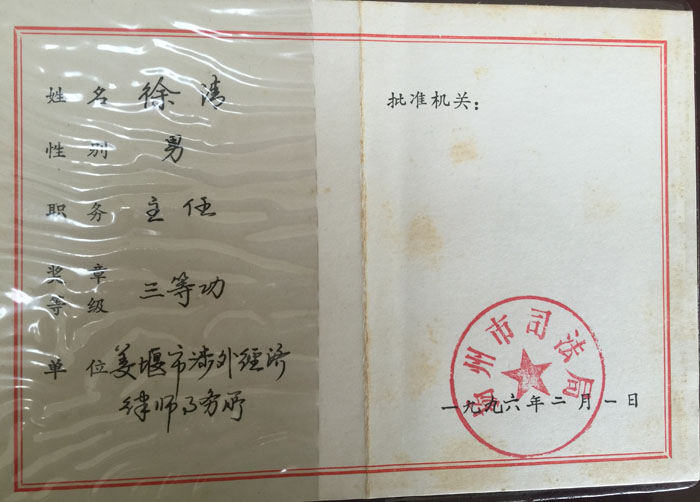 姓名 徐清
性别 男
职务 主任
奖章
等级 三等功
单位 姜堰市涉外经济
律师事务所
批准机关：
州市司法局
一九九六年二月一日